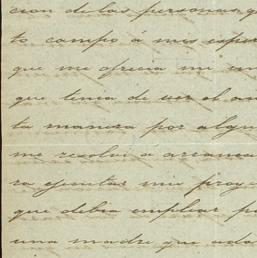 cion de las personas q
to campo á mis esper
que me ofrecia mi
que tenia de ver el an
ta manera por algu
me resolví a arranca
ra ejecutar mi proye
que debia emplear p
una madre que ado